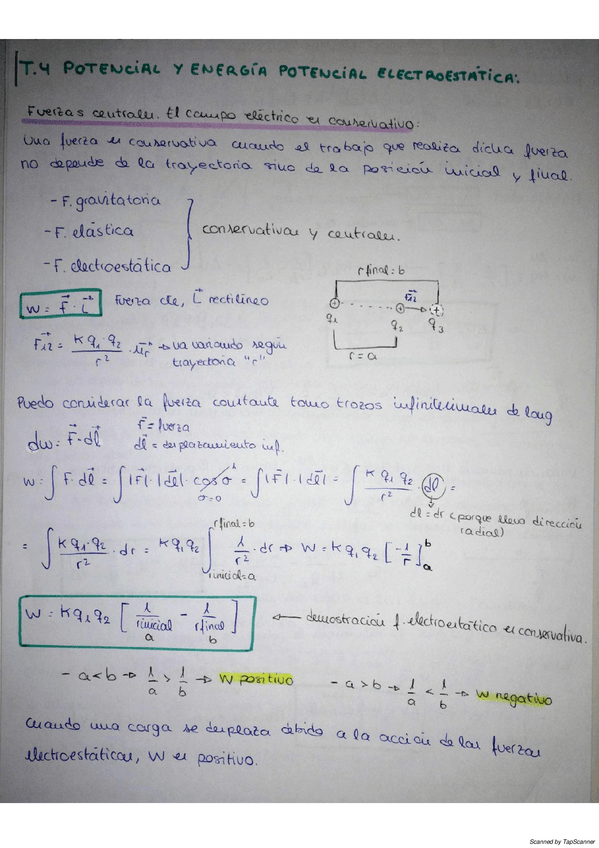 T.4 POTENCIAL Y ENERGÍA POTENCIAL ELECTROESTÁTICA:
Fuerzas centrales. El campo eléctrico es conservativo:
Una fuerza es conservativa cuando el trabajo que realiza dicha fuerza
no depende de la trayectoria sino de la posición inicial y final.
- F. gravitatoria
- F. elástica
- F. electroestática
conservativas y centrales.
r final = b
F₁₂
q₁ q₂ q₃
r = a
W = F⃗ · L⃗ Fuerza cte, L⃗ rectilíneo
F⃗₁₂ = K q₁ · q₂ / r² · u⃗r → va variando según
trayectoria "r"
Puedo considerar la fuerza constante tomo trozos infinitesimales de long
dw = F⃗ · dl⃗
F⃗ = fuerza
dl⃗ = desplazamiento inf.
W = ∫ F · dl⃗ = ∫ |F⃗| · |dl⃗| · cos σ = ∫ |F⃗| · |dl⃗| = ∫ K q₁ q₂ / r² · dl =
1
σ = 0
dl = dr (porque llevo dirección
radial)
= ∫ K q₁ · q₂ / r² · dr = K q₁ q₂ ∫ 1/r² · dr → W = K q₁ q₂ [-1/r] b a
r final = b
r inicial = a
W = K q₁ q₂ [ 1/r inicial - 1/r final ] ← demostración f. electroestática es conservativa.
a b
- a < b → 1/a > 1/b → W positivo - a > b → 1/a < 1/b → W negativo
Cuando una carga se desplaza debido a la acción de las fuerzas
electroestáticas, W es positivo.
Scanned by TapScanner